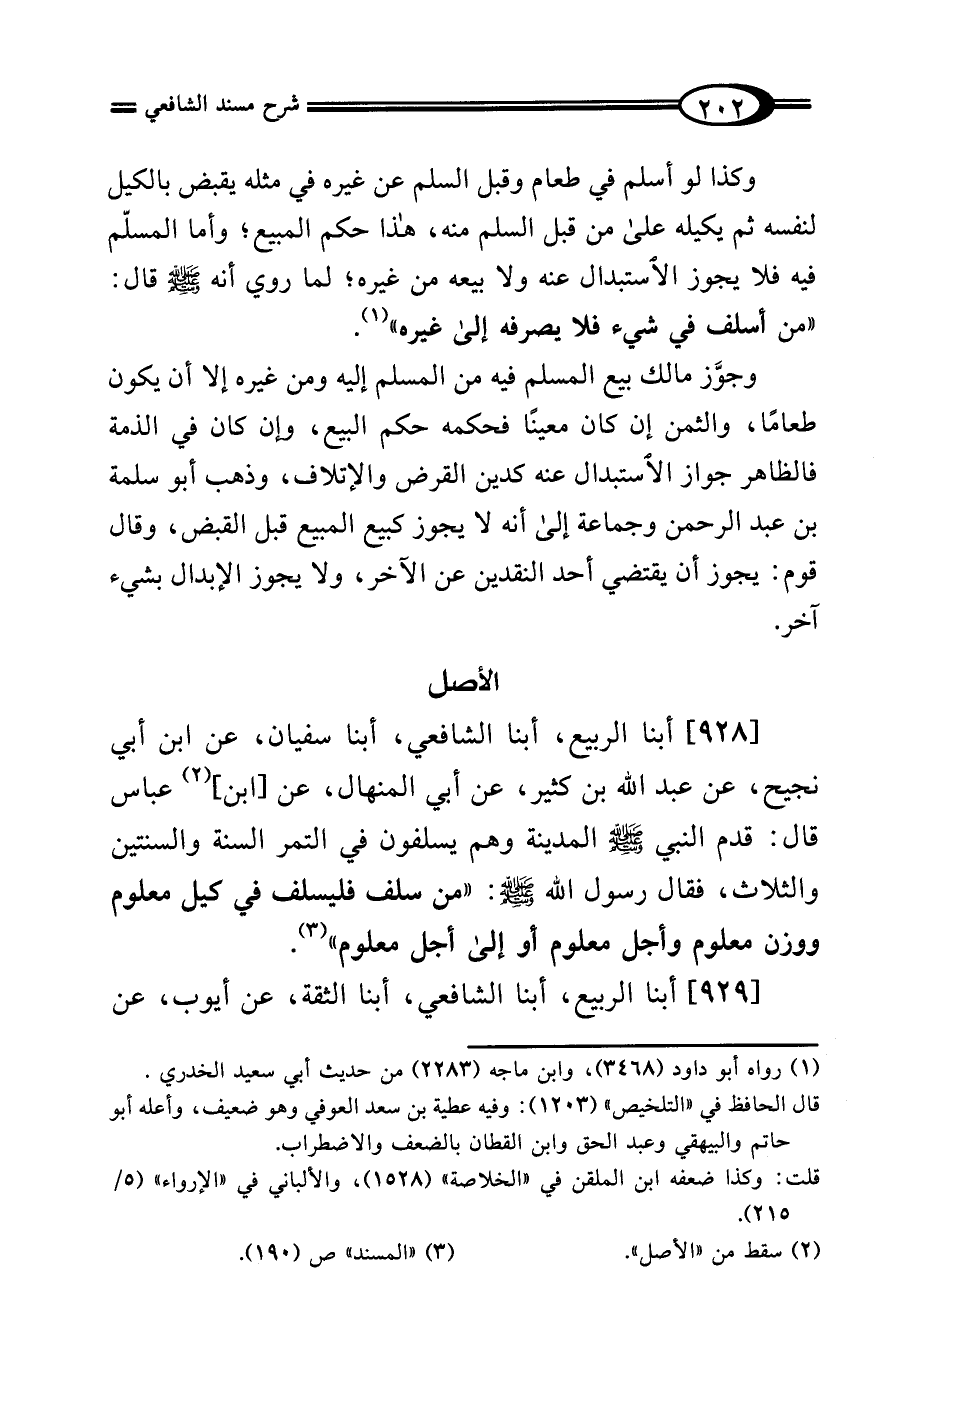 ٢٠٢ شرح مسند الشافعي
وكذا لو أسلم في طعام وقبل السلم عن غيره في مثله يقبض بالكيل
لنفسه ثم يكيله علىٰ من قبل السلم منه، هٰذا حكم المبيع؛ وأما المسلّم
فيه فلا يجوز الاستبدال عنه ولا بيعه من غيره؛ لما روي أنه ﷺ قال:
«من أسلف في شيء فلا يصرفه إلىٰ غيره»(١).
وجوَّز مالك بيع المسلم فيه من المسلم إليه ومن غيره إلا أن يكون
طعامًا، والثمن إن كان معينًا فحكمه حكم البيع، وإن كان في الذمة
فالظاهر جواز الاستبدال عنه كدين القرض والإتلاف، وذهب أبو سلمة
بن عبد الرحمن وجماعة إلىٰ أنه لا يجوز كبيع المبيع قبل القبض، وقال
قوم: يجوز أن يقتضي أحد النقدين عن الآخر، ولا يجوز الإبدال بشيء
آخر.
الأصل
[٩٢٨] أبنا الربيع، أبنا الشافعي، أبنا سفيان، عن ابن أبي
نجيح، عن عبد الله بن كثير، عن أبي المنهال، عن [ابن](٢) عباس
قال: قدم النبي ﷺ المدينة وهم يسلفون في التمر السنة والسنتين
والثلاث، فقال رسول الله ﷺ: «من سلف فليسلف في كيل معلوم
ووزن معلوم وأجل معلوم أو إلىٰ أجل معلوم»(٣).
[٩٢٩] أبنا الربيع، أبنا الشافعي، أبنا الثقة، عن أيوب، عن
(١) رواه أبو داود (٣٤٦٨)، وابن ماجه (٢٢٨٣) من حديث أبي سعيد الخدري .
قال الحافظ في «التلخيص» (١٢٠٣): وفيه عطية بن سعد العوفي وهو ضعيف، وأعله أبو
حاتم والبيهقي وعبد الحق وابن القطان بالضعف والاضطراب.
قلت: وكذا ضعفه ابن الملقن في «الخلاصة» (١٥٢٨)، والألباني في «الإرواء» (٥/
٢١٥).
(٢) سقط من «الأصل». (٣) «المسند» ص (١٩٠).